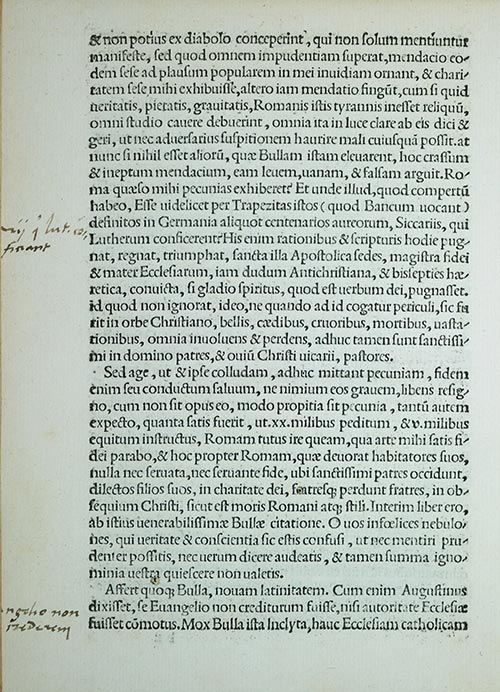 & non potius ex diabolo conceperint, qui non solum mentiuntur
manifeste, sed quod omnem impudentiam superat, mendacio eo⸗
dem sese ad plausum popularem in mei inuidiam ornant, & chari⸗
tatem sese mihi exhibuisse, altero iam mendatio fingūt, cum si quid
ueritatis, pietatis, grauitatis, Romanis istis tyrannis inesset reliquū,
omni studio cauere debuerint, omnia ita in luce clare ab eis dici &
geri, ut nec aduersarius suspitionem haurire mali cuiusquā possit. at
nunc si nihil esset aliorū, quæ Bullam istam eleuarent, hoc crassum
& ineptum mendacium, eam leuem, uanam, & falsam arguit. Ro⸗
ma quæso mihi pecunias exhiberet? Et unde illud, quod compertū
habeo, Esse uidelicet per Trapezitas istos (quod Bancum uocant)
definitos in Germania aliquot centenarios aureorum, Siccariis, qui
Lutherum conficerent? His enim rationibus & scripturis hodie pug⸗
nat, regnat, triumphat, sancta illa Apostolica sedes, magistra fidei
& mater Ecclesiarum, iam dudum Antichristiana, & bis septies hæ⸗
retica, conuicta, si gladio spiritus, quod est uerbum dei, pugnasset.
id quod non ignorat, ideo, ne quando ad id cogatur periculi, sic fu
rit in orbe Christiano, bellis, cædibus, cruoribus, mortibus, uasta⸗
tionibus, omnia inuoluens & perdens, adhuc tamen sunt sanctissi⸗
mi in domino patres, & ouiū Christi uicarii, pastores.
Sed age, ut & ipse colludam, adhuc mittant pecuniam, fidem
enim seu conductum saluum, ne nimium eos grauem, libens resig⸗
no, cum non sit opus eo, modo propitia sit pecunia, tantū autem
expecto, quanta satis fuerit, ut .xx. milibus peditum, & v. milibus
equitum instructus, Romam tutus ire queam, qua arte mihi satis fi⸗
dei parabo, & hoc propter Romam, quæ deuorat habitatores suos,
nulla nec seruata, nec seruante fide, ubi sanctissimi patres occidunt,
dilectos filios suos, in charitate dei, fratresq; perdunt fratres, in ob⸗
sequium Christi, sicut est moris Romani atq; stili. Interim liber ero,
ab istius uenerabilissimæ Bullæ citatione. O uos infœlices nebulo⸗
nes, qui ueritate & conscientia sic estis confusi, ut nec mentiri pru⸗
denter possitis, nec uerum dicere audeatis, & tamen summa igno⸗
minia uestra quiescere non ualetis.
Affert quoq; Bulla, nouam latinitatem. Cum enim Augustinus
dixisset, se Euangelio non crediturum fuisse, nisi autoritate Ecclesiæ
fuisset cōmotus. Mox Bulla ista Inclyta, hanc Ecclesiam catholicam
ficiant
non